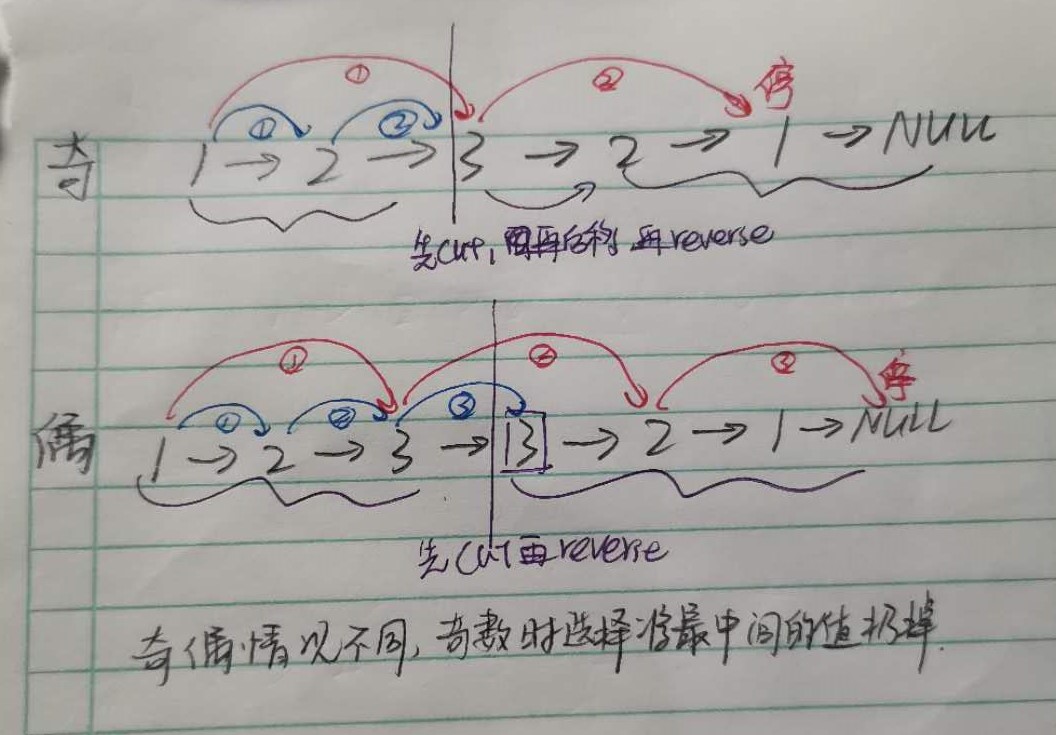 ① ② 停
① ②
奇 1 → 2 → 3 → 2 → 1 → NULL
先cut, 再后移 再reverse
① ② ③ 停
① ② ③
偶 1 → 2 → 3 → 3 → 2 → 1 → NULL
先cut再reverse
奇偶情况不同,奇数时选择将最中间的值扔掉.